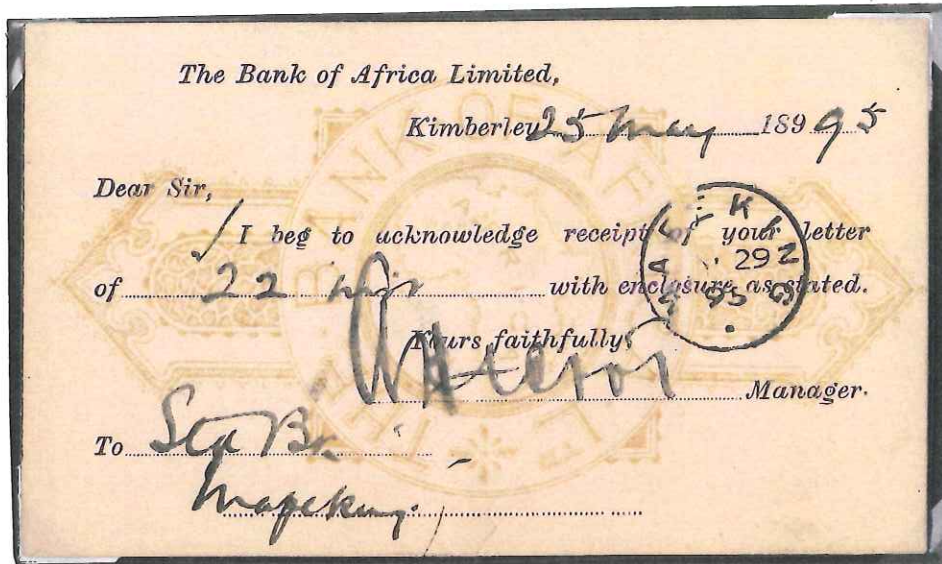 The Bank of Africa Limited,
Kimberley 25 May 189 95
Dear Sir,
I beg to acknowledge receipt of your letter
of 22 with enclosure as stated.
Yours faithfully
Manager.
To Std Bk
Mafeking.
THE BANK OF AFRICA LD
MAFEKING
29
95